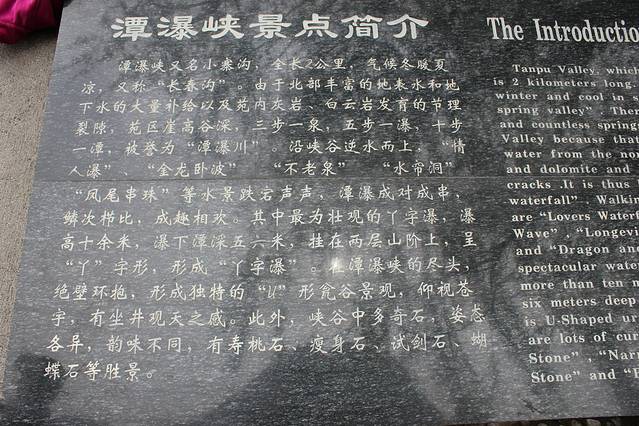 潭瀑峡景点简介
潭瀑峡又名小寨沟，全长2公里，气候冬暖夏
凉，又称“长春沟”。由于北部丰富的地表水和地
下水的大量补给以及苑内灰岩、白云岩发育的节理
裂隙，苑区崖高谷深，三步一泉，五步一瀑，十步
一潭，被誉为“潭瀑川”。沿峡谷逆水而上，“情
人瀑”、“金龙卧波” “不老泉” “水帘洞”
“凤尾串珠”等水景跌宕声声，潭瀑成对成串，
鳞次栉比，成趣相欢。其中最为壮观的丫字瀑，瀑
高十余米，瀑下潭深五六米，挂在两层山阶上，呈
“丫”字形，形成“丫字瀑”。在潭瀑峡的尽头，
绝壁环抱，形成独特的“U”形瓮谷景观，仰视苍
宇，有坐井观天之感。此外，峡谷中多奇石，姿态
各异，韵味不同，有寿桃石、瘦身石、试剑石、蝴
蝶石等胜景。
The Introductio
Tanpu Valley, which
is 2 kilometers long.
winter and cool in s
spring valley". Ther
and countless spring
Valley because that
water from the no
and dolomite and
cracks .It is thus
waterfall". Walkin
are "Lovers Water
Wave" , "Longevi
and "Dragon an
spectacular wate
more than ten m
six meters deep
is U-Shaped ur
are lots of cur
Stone" , "Narr
Stone" and "B